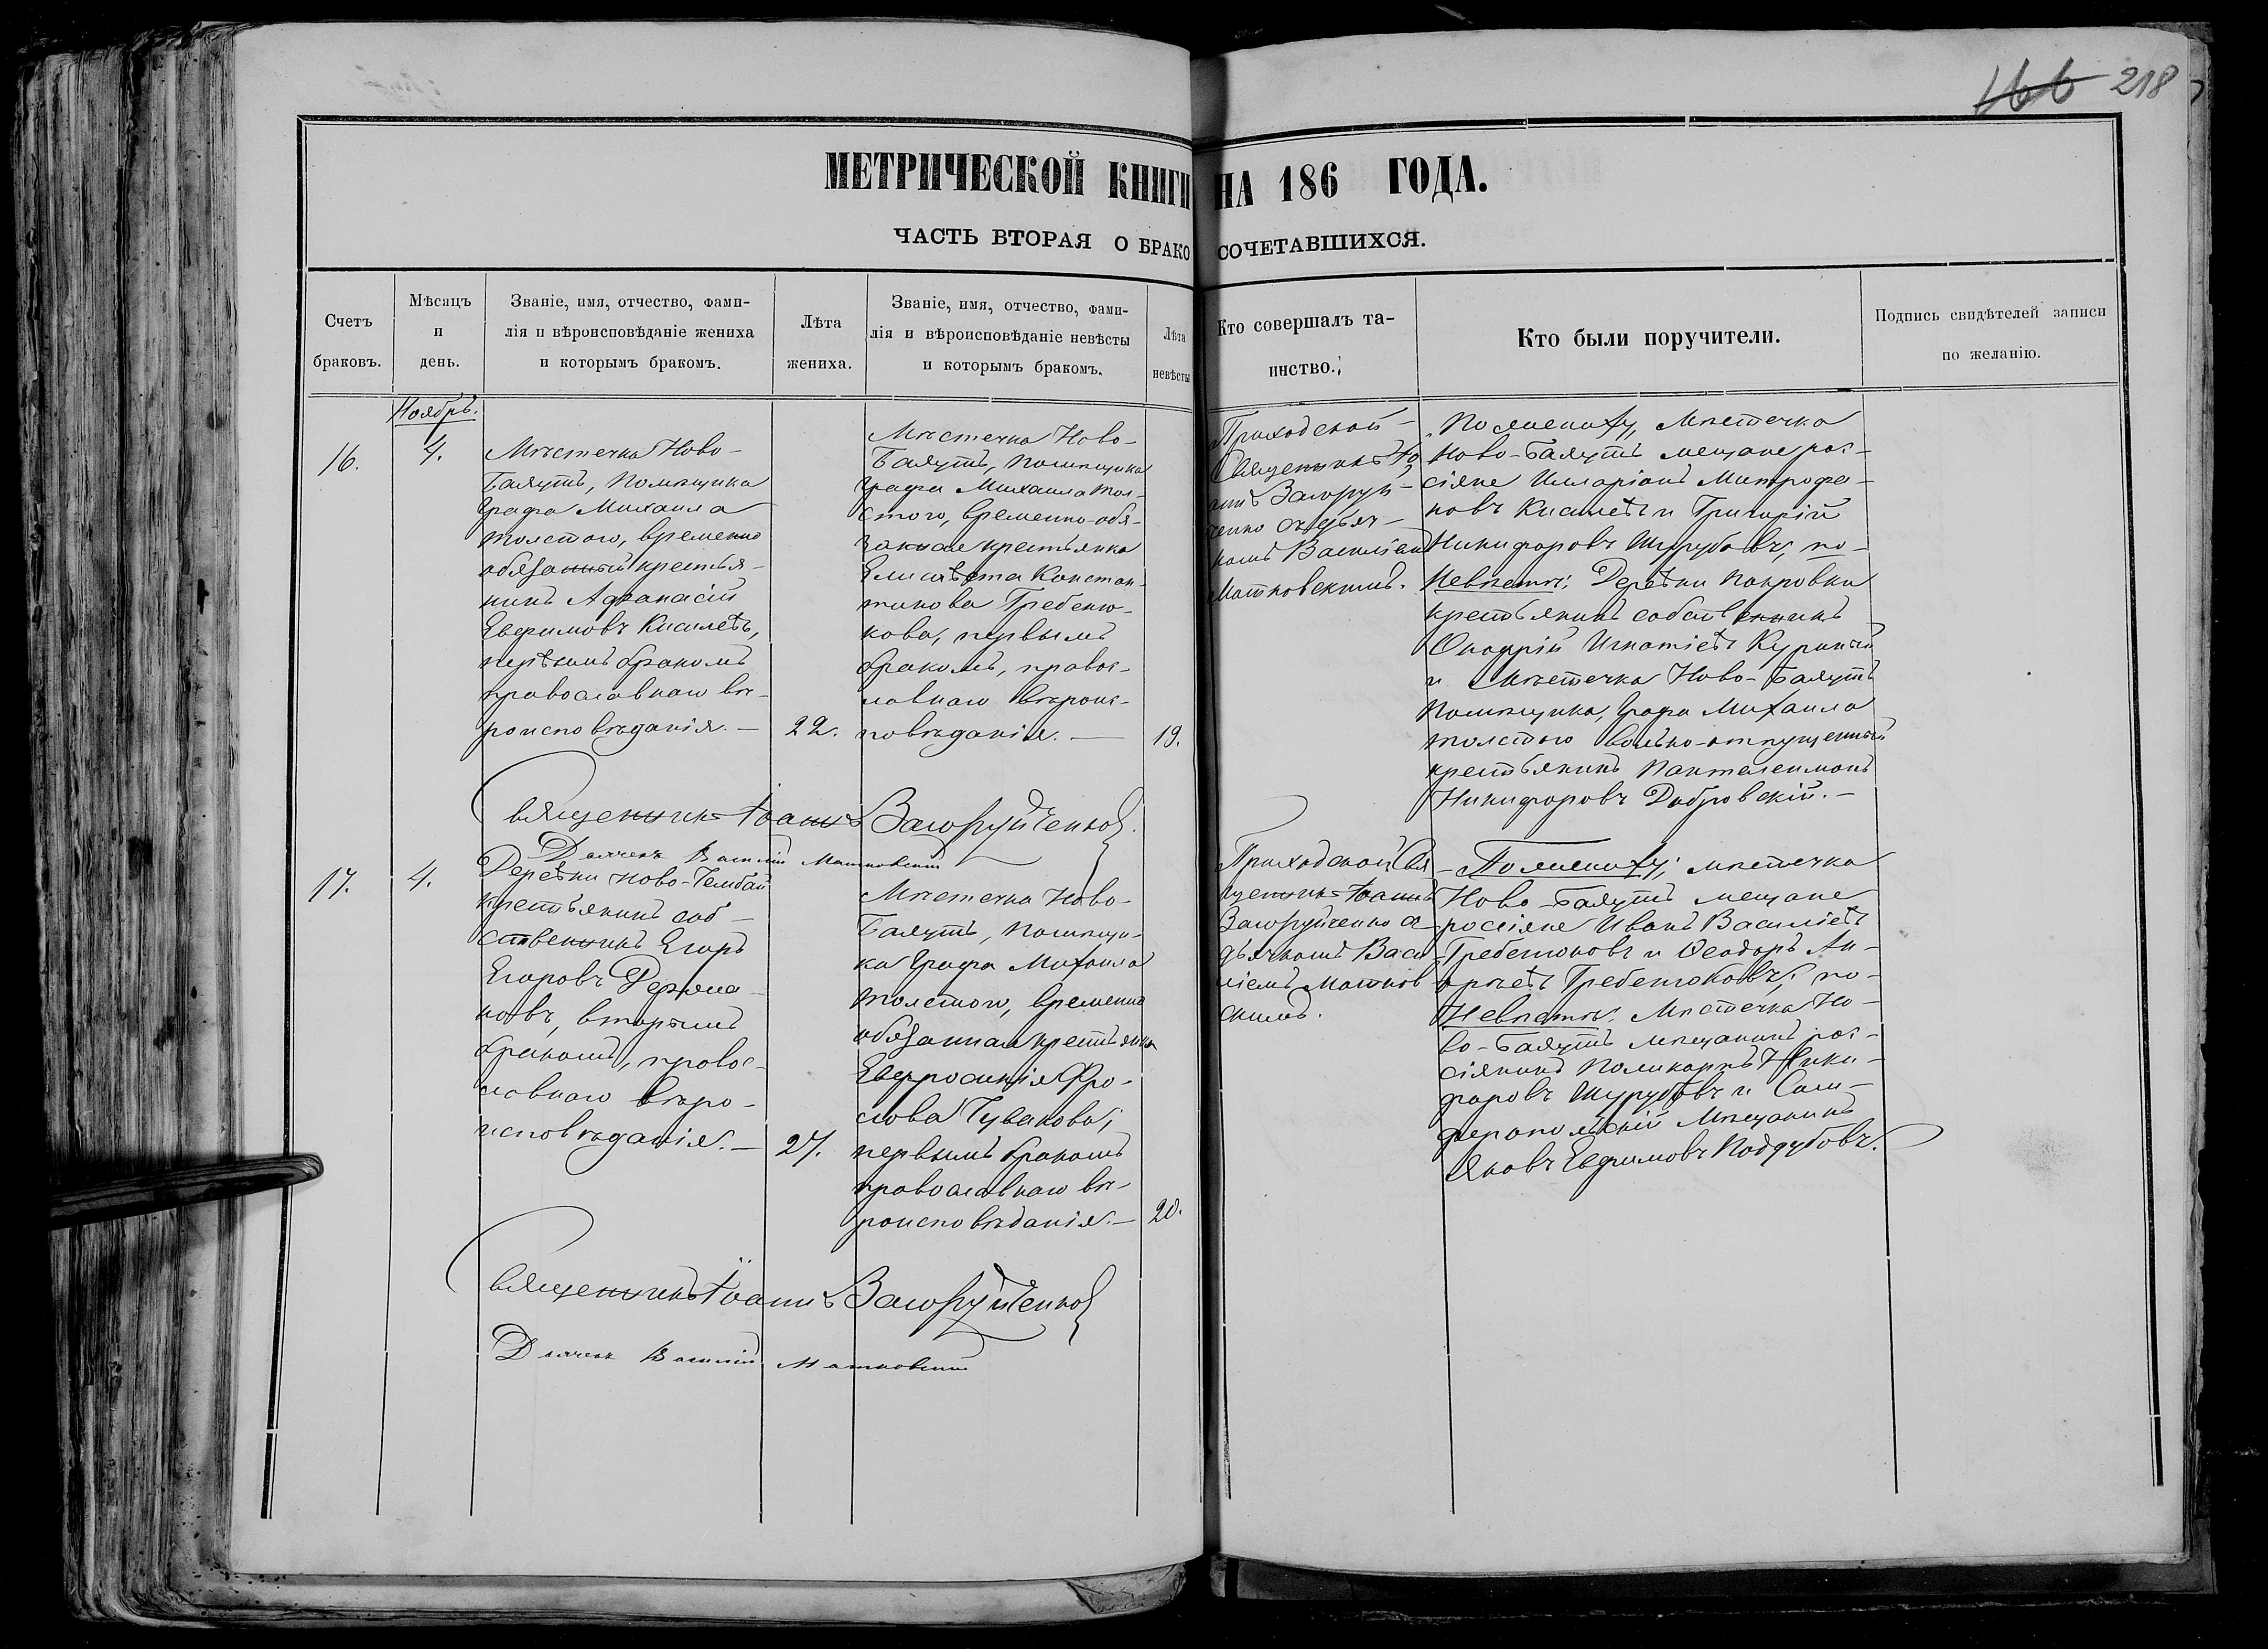 166 218
МЕТРИЧЕСКОЙ КНИГИ НА 186 ГОДА.
ЧАСТЬ ВТОРАЯ О БРАКОСОЧЕТАВШИХСЯ.
Счетъ
браковъ.
Мѣсяцъ
и
день.
Званіе, имя, отчество, фами-
лія и вѣроисповѣданіе жениха
и которымъ бракомъ.
Лѣта
жениха.
Званіе, имя, отчество, фами-
лія и вѣроисповѣданіе невѣсты
и которымъ бракомъ.
Лѣта
невѣсты
Кто совершалъ та-
инство.
Кто были поручители.
Подпись свидѣтелей записи
по желанію.
Ноябрь.
16.
4.
Мѣстечка Ново-
Баяутъ, Помѣщика
Графа Михаила
Толстого, временно
обязанный крестья-
нинъ Афанасій
Евфимовъ Кисилевъ,
первымъ бракомъ
православнаго вѣ-
роисповѣданія. —
22.
Мѣстечка Ново-
Баяутъ, Помѣщика
Графа Михаила Тол-
стого, временно-обя-
занная крестьянка
Елисавета Констан-
тинова Гребеню-
кова, первымъ
бракомъ, правос-
лавнаго вѣроис-
повѣданія. —
19.
Приходской
Священникъ Іо
аннъ Загоруй-
ченко съ дьяч-
комъ Василіемъ
Матковскимъ.
По жениху, Мѣстечка
Ново-Баяутъ мещане рос-
сіяне Иларіонъ Митрофа-
новъ Кисилевъ и Григорій
Никифоровъ Шурубовъ; по-
Невѣсты; Деревни Покровки
крестьянинъ собственникъ
Онофрій Игнатіевъ
и Мѣстечка Ново-Баяутъ
Помѣщика, Графа Михаила
Толстого вольно-отпущенный
крестьянинъ Пантелеимонъ
Никифоровъ Добровскій. —
Священникъ Іоаннъ Загоруйченко
Дьячекъ Василій Матковскій
17.
4.
Деревни Ново-
крестьянинъ соб-
ственникъ Егоръ
Егоровъ
вторымъ
бракомъ, правос-
лавнаго вѣро-
исповѣданія. —
27.
Мѣстечка Ново-
Баяутъ, Помѣщи-
ка Графа Михаила
Толстого, временно
обязанная крестьянка
Евфросинія Фро-
лова Чувакова;
первымъ бракомъ
православнаго вѣ-
роисповѣданія. —
20.
Приходской Свя
щенникъ Іоаннъ
Загоруйченко съ
дьячкомъ Васи
ліемъ Матков
скимъ.
— По жениху; мѣстечка
Ново-Баяутъ мещане
россіяне Иванъ Василіевъ
Гребенюковъ и Ѳеодоръ Ан-
дреевъ Гребенюковъ; по-
Невѣсты: Мѣстечка Но-
во-Баяутъ мѣщанинъ рос-
сіянинъ Поликарпъ Ники-
форовъ Шурубовъ и Сим-
феропольскій Мѣщанинъ
Яковъ Евфимовъ Поддубовъ.
Священникъ Іоаннъ Загоруйченко
Дьячекъ Василій Матковскій